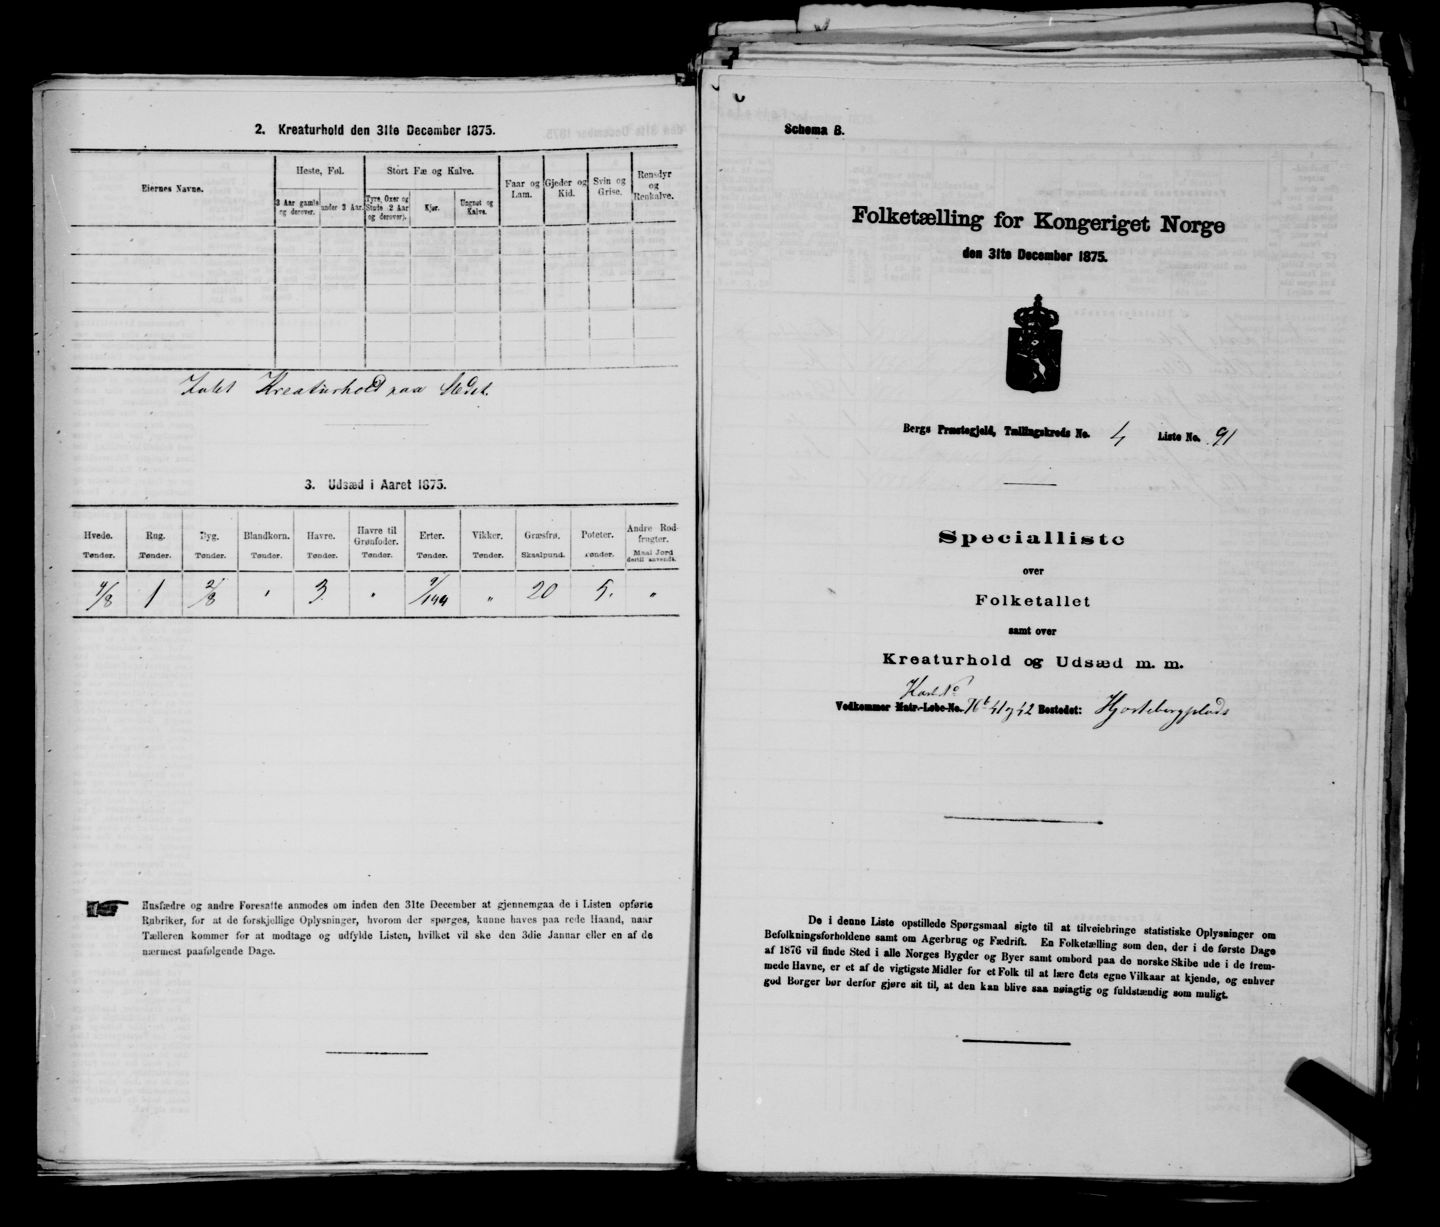 2. Kreaturhold den 31te December 1875.
Eiernes Navne.
Heste, Føl.
Stort Fæ og Kalve.
Faar og Lam.
Gjeder og Kid.
Svin og Grise.
Rensdyr og Renkalve.
3 Aar gamle og derover.
under 3 Aar.
Tyre, Oxer og Stude (2 Aar og derover).
Kjør.
Ungnøt og Kalve.
Intet Kreaturhold paa Stedet.
3. Udsæd i Aaret 1875.
Hvede. Rug. Byg. Blandkorn. Havre. Havre til Grønfoder. Erter. Vikker. Græsfrø. Poteter. Andre Rodfrugter.
Tønder. Tønder. Tønder. Tønder. Tønder. Tønder. Tønder. Tønder. Skaalpund. Tønder. Maal Jord dertil anvendt.
4/8 1 2/8 " 3 " 9/144 " 20 5. "
Husfædre og andre Foresatte anmodes om inden den 31te December at gjennemgaa de i Listen opførte
Rubriker, for at de forskjellige Oplysninger, hvorom der spørges, kunne haves paa rede Haand, naar
Tælleren kommer for at modtage og udfylde Listen, hvilket vil ske den 3die Januar eller en af de
nærmest paafølgende Dage.
Schema B.
Folketælling for Kongeriget Norge
den 31te December 1875.
Bergs Præstegjeld, Tællingskreds No. 4 Liste No. 91
Specialliste
over
Folketallet
samt over
Kreaturhold og Udsæd m. m.
Kart No
Vedkommer Matr.-Løbe-No. 76b 41 og 42 Bostedet: Hjortebergplads
De i denne Liste opstillede Spørgsmaal sigte til at tilveiebringe statistiske Oplysninger om
Befolkningsforholdene samt om Agerbrug og Fædrift. En Folketælling som den, der i de første Dage
af 1876 vil finde Sted i alle Norges Bygder og Byer samt ombord paa de norske Skibe ude i de frem-
mede Havne, er et af de vigtigste Midler for et Folk til at lære dets egne Vilkaar at kjende, og enhver
god Borger bør derfor gjøre sit til, at den kan blive saa nøiagtig og fuldstændig som muligt.